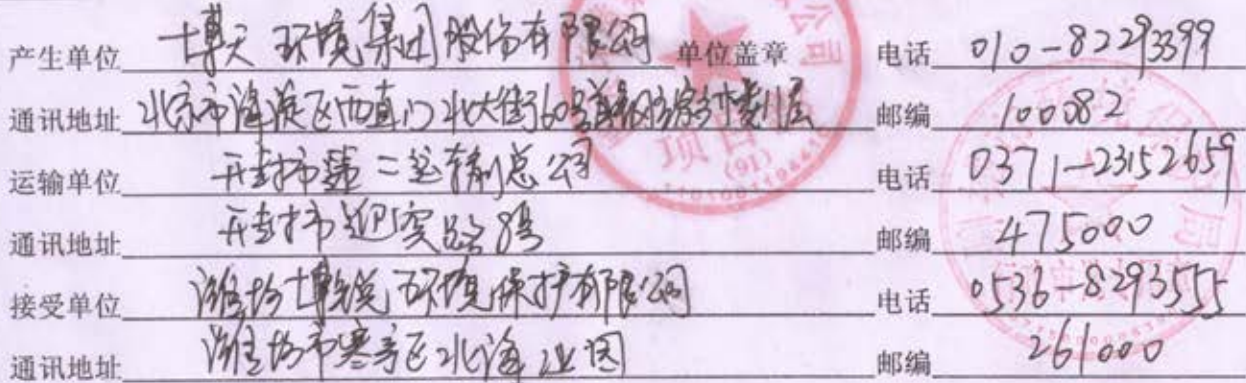 产生单位 博天环境集团股份有限公司 单位盖章 电话 010-82293399
通讯地址 北京市海淀区西直门北大街60号首钢国际大楼11层 邮编 100082
运输单位 开封市第二运输总公司 电话 0371-23152659
通讯地址 开封市迎宾路8号 邮编 475000
接受单位 潍坊博锐环境保护有限公司 电话 0536-8293555
通讯地址 潍坊市寒亭区北海工业园 邮编 261000
公司
项目部
(91)